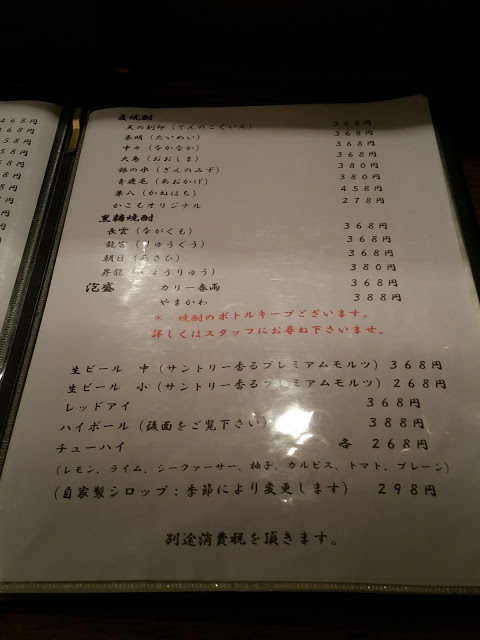 468円
468円
458円
458円
麦焼酎
天の刻印（てんのこくいん） 368円
泰明（たいめい） 368円
中々（なかなか） 368円
大島（おおしま） 368円
銀の水（ぎんのみず） 380円
青鹿毛（あおかげ） 380円
兼八（かねはち） 458円
かこもオリジナル 278円
黒糖焼酎
長雲（ながくも） 368円
龍宮（りゅうぐう） 368円
朝日（あさひ） 368円
昇龍（しょうりゅう） 380円
泡盛 カリー春雨 368円
やまかわ 388円
＊ 焼酎のボトルキープございます。
詳しくはスタッフにお尋ね下さいませ。
生ビール 中（サントリー香るプレミアムモルツ）368円
生ビール 小（サントリー香るプレミアムモルツ）268円
レッドアイ 368円
ハイボール（後面をご覧下さい） 388円
チューハイ 各 268円
（レモン、ライム、シークァーサー、柚子、カルピス、トマト、プレーン）
（自家製シロップ：季節により変更します） 298円
別途消費税を頂きます。